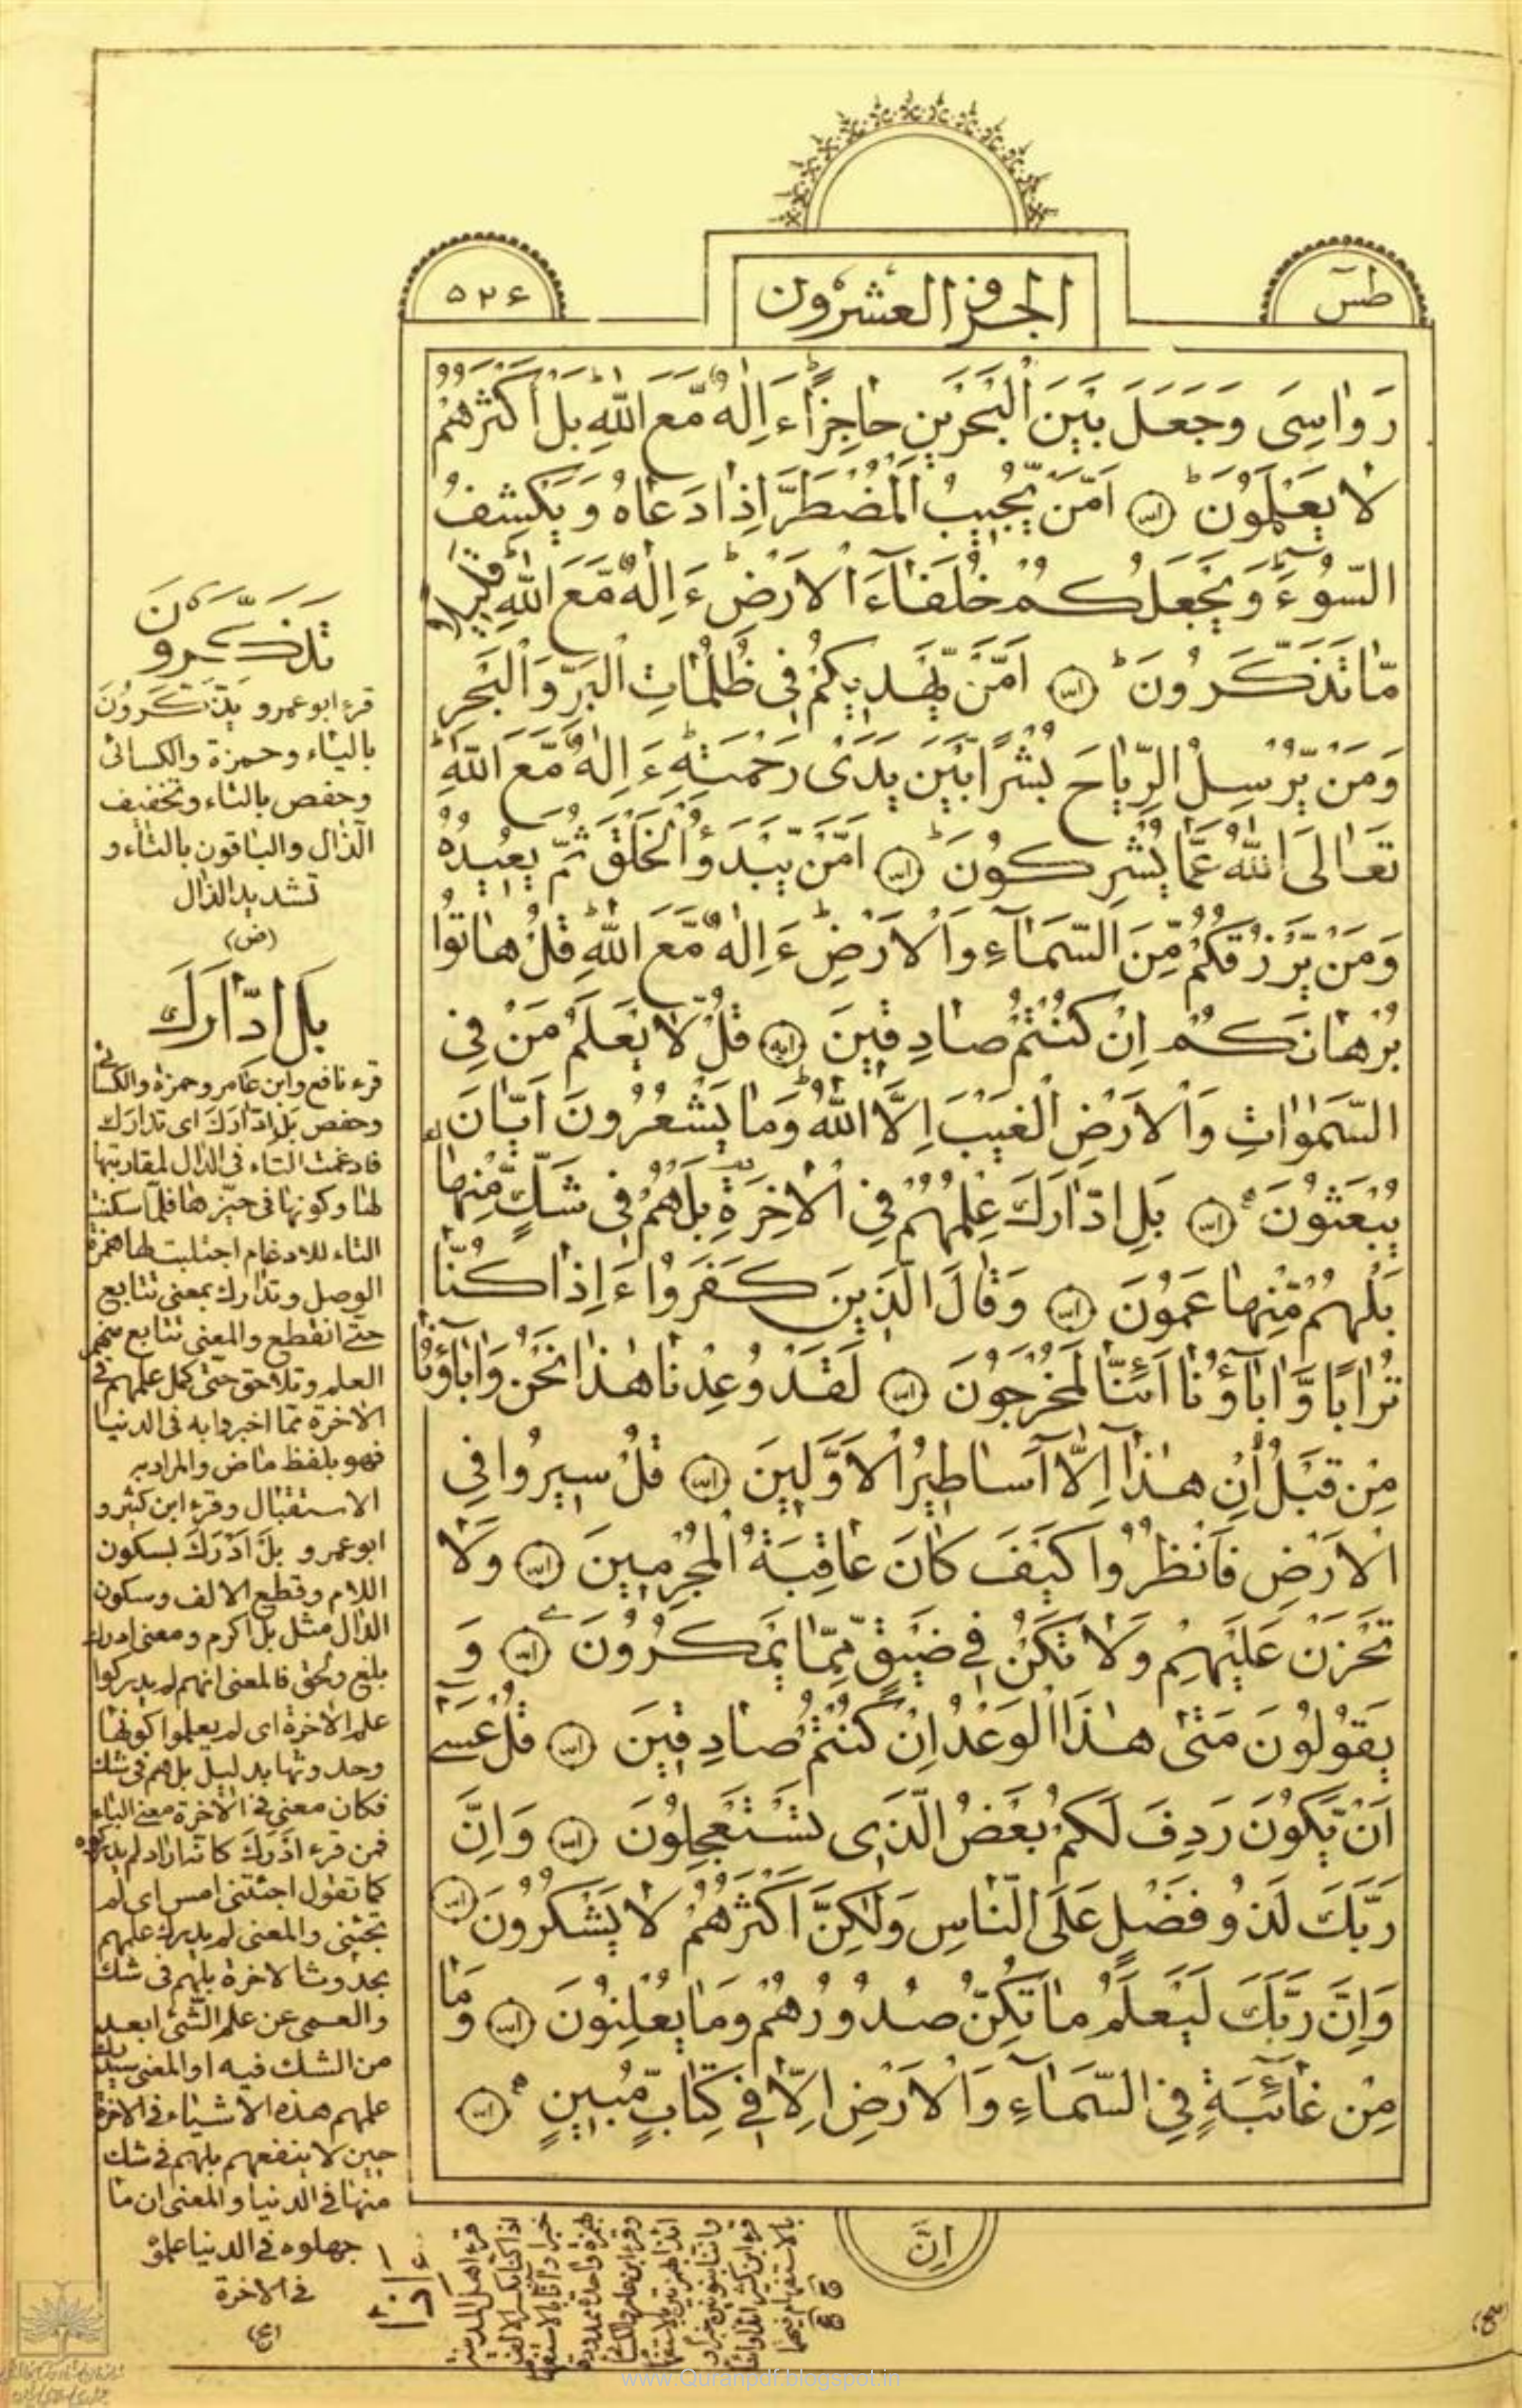 طس
الجزؤ العشرون
۵۲۶
رَوٰاسِىَ وَجَعَلَ بَيْنَ الْبَحْرَيْنِ حٰاجِزًاؕ ءَاِلٰهٌ مَّعَ اللّٰهِؕ بَلْ اَكْثَرُهُمْ
لٰا يَعْلَمُونَؕ اَمَّنْ يُّجِيبُ الْمُضْطَرَّ اِذٰا دَعٰاهُ وَ يَكْشِفُ
السُّوٓءَ وَ يَجْعَلُكُمْ خُلَفٰٓاءَ الْاَرْضِؕ ءَاِلٰهٌ مَّعَ اللّٰهِؕ قَلِيلًا
مّٰا تَذَكَّرُونَؕ اَمَّنْ يَّهْدِيكُمْ فِى ظُلُمٰاتِ الْبَرِّ وَ الْبَحْرِ
وَ مَنْ يُّرْسِلُ الرِّيٰاحَ بُشْرًا بَيْنَ يَدَىْ رَحْمَتِهِؕ ءَاِلٰهٌ مَّعَ اللّٰهِؕ
تَعٰالَى اللّٰهُ عَمّٰا يُشْرِكُونَؕ اَمَّنْ يَّبْدَؤُا الْخَلْقَ ثُمَّ يُعِيدُهُ
وَ مَنْ يَّرْزُقُكُمْ مِّنَ السَّمٰٓاءِ وَ الْاَرْضِؕ ءَاِلٰهٌ مَّعَ اللّٰهِؕ قُلْ هٰاتُوا
بُرْهٰانَكُمْ اِنْ كُنْتُمْ صٰادِقِينَ قُلْ لّٰا يَعْلَمُ مَنْ فِى
السَّمٰوٰاتِ وَ الْاَرْضِ الْغَيْبَ اِلَّا اللّٰهُؕ وَ مٰا يَشْعُرُونَ اَيّٰانَ
يُبْعَثُونَ بَلِ ادّٰارَكَ عِلْمُهُمْ فِى الْاٰخِرَةِ بَلْ هُمْ فِى شَكٍّ مِّنْهٰا
بَلْ هُمْ مِّنْهٰا عَمُونَ وَ قٰالَ الَّذِينَ كَفَرُوا ءَاِذٰا كُنّٰا
تُرٰابًا وَّ اٰبٰٓاؤُنٰا اَئِنّٰا لَمُخْرَجُونَ لَقَدْ وُعِدْنٰا هٰذٰا نَحْنُ وَ اٰبٰٓاؤُنٰا
مِنْ قَبْلُ اِنْ هٰذٰٓا اِلّٰآ اَسٰاطِيرُ الْاَوَّلِينَ قُلْ سِيرُوا فِى
الْاَرْضِ فَانْظُرُوا كَيْفَ كٰانَ عٰاقِبَةُ الْمُجْرِمِينَ وَلٰا
تَحْزَنْ عَلَيْهِمْ وَ لٰا تَكُنْ فِى ضَيْقٍ مِّمّٰا يَمْكُرُونَ وَ
يَقُولُونَ مَتٰى هٰذَا الْوَعْدُ اِنْ كُنْتُمْ صٰادِقِينَ قُلْ عَسٰٓى
اَنْ يَّكُونَ رَدِفَ لَكُمْ بَعْضُ الَّذِى تَسْتَعْجِلُونَ وَ اِنَّ
رَبَّكَ لَذُو فَضْلٍ عَلَى النّٰاسِ وَلٰكِنَّ اَكْثَرَهُمْ لٰا يَشْكُرُونَ
وَ اِنَّ رَبَّكَ لَيَعْلَمُ مٰا تُكِنُّ صُدُورُهُمْ وَ مٰا يُعْلِنُونَ وَ مٰا
مِنْ غٰٓائِبَةٍ فِى السَّمٰٓاءِ وَ الْاَرْضِ اِلّٰا فِى كِتٰابٍ مُّبِينٍ
اِنَّ
تَذَكَّرُونَ
قرء ابوعمرو يذّكّرون
بالياء وحمزة والكسائى
وحفص بالتاء وتخفيف
الذال والباقون بالتاء و
تشديد الذال
(ض)
بَلِ ادّٰارَكَ
قرء نافع وابن عامر وحمزة والكسائى
وحفص بل ادّارك اى تدارك
فادغمت التاء فى الدال لمقاربتها
لها وكونها فى حيّزها فلمّا سكنت
التاء للادغام اجتلبت لها همزة
الوصل وتدارك بمعنى تتابع
حتى انقطع والمعنى تتابع منهم
العلم وتلاحق حتى كمل علمهم فى
الاخرة ممّا اخبروا به فى الدنيا
فهو بلفظ ماض والمراد به
الاستقبال وقرء ابن كثير و
ابوعمرو بل ادرك بسكون
اللام وقطع الالف وسكون
الدال مثل بل اكرم ومعنى ادرك
بلغ ولحق فالمعنى انهم لم يدركوا
علم الاخرة اى لم يعلموا كونها
وحدوثها بدليل بل هم فى شك
فكان معنى فى الاخرة معنى الباء
فمن قرء ادرك كانّه اراد لم يدركوه
كما تقول اجئتنى امس اى لم
تجئنى والمعنى لم يدرك علمهم
بحدوث الاخرة بل هم فى شك
والعمى عن علم الشّىء ابعد
من الشك فيه او المعنى سيدرك
علمهم هذه الاشياء فى الاخرة
حين لا ينفعهم بل هم فى شك
منها فى الدنيا والمعنى ان ما
جهلوه فى الدنيا علموه
فى الاخرة
(مج)
www.Quranpdf.blogspot.in